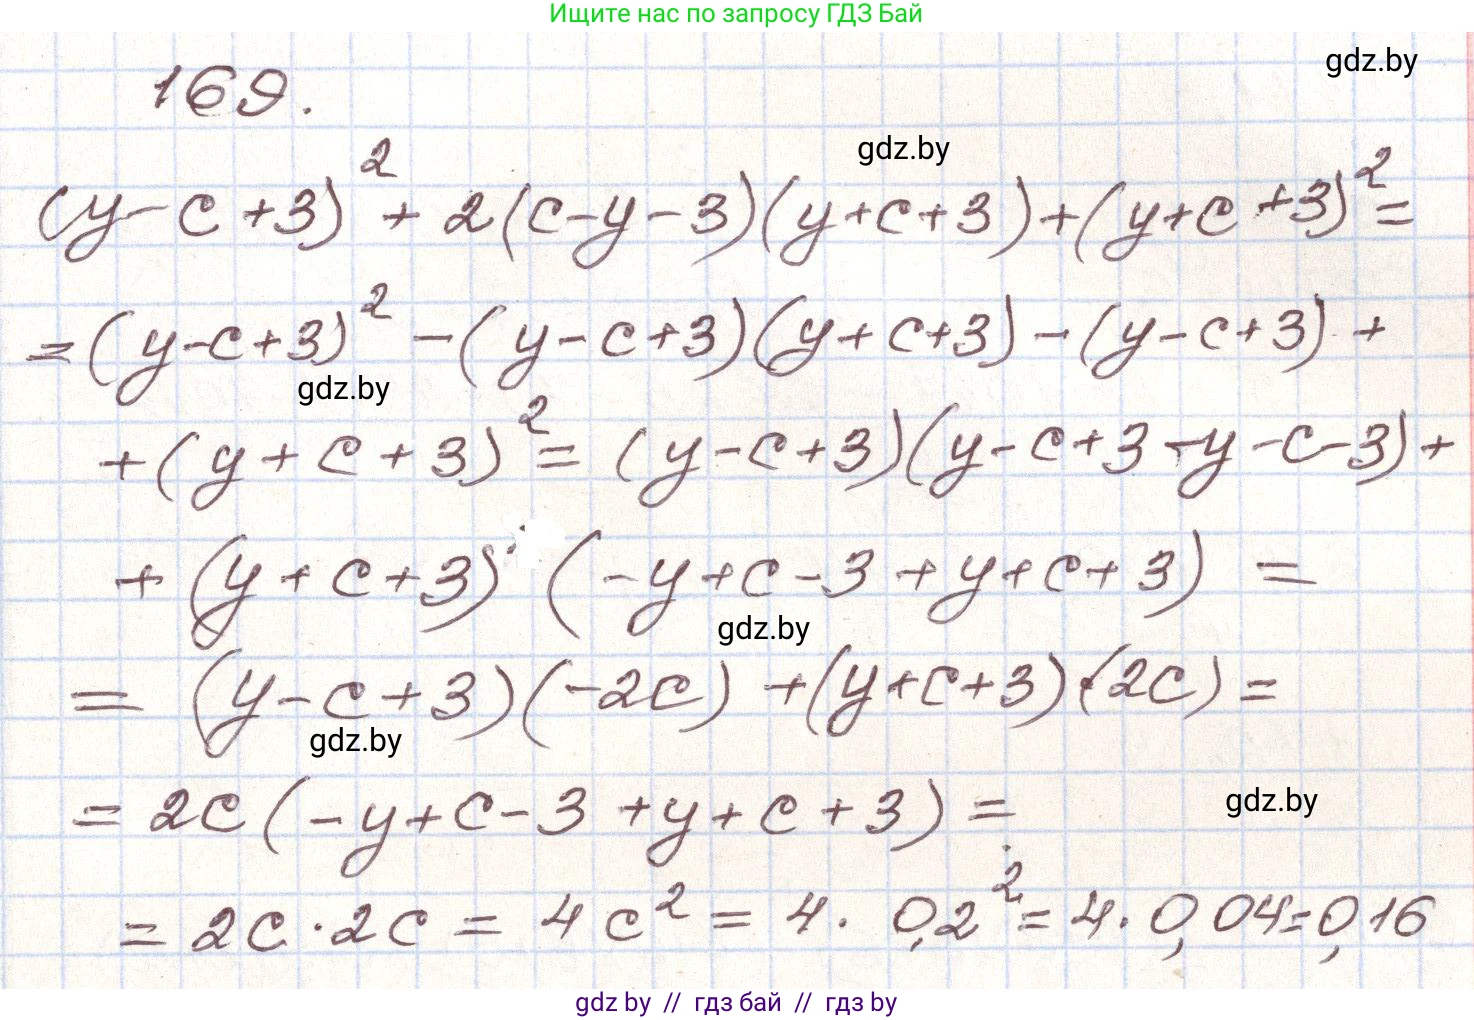 Ищите нас по запросу ГДЗ Бай
gdz.by
169.
gdz.by
(y-c+3)²+2(c-y-3)(y+c+3)+(y+c+3)²=
=(y-c+3)²-(y-c+3)(y+c+3)-(y-c+3)+
gdz.by
+(y+c+3)²=(y-c+3)(y-c+3-y-c-3)+
+(y+c+3)·(-y+c-3+y+c+3)=
gdz.by
=(y-c+3)(-2c)+(y+c+3)·(2c)=
gdz.by
=2c(-y+c-3+y+c+3)=
gdz.by
=2c·2c=4c²=4·0,2²=4·0,04=0,16
gdz by // гдз бай // гдз by